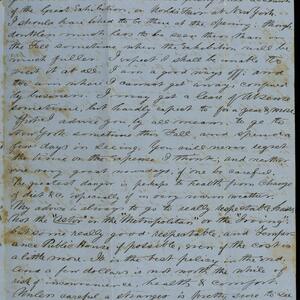 of the Great Exhibition, or World's Fair at New York.
I should have liked to be there at the opening, though
doubtless much less to be seen there than in
the Fall sometime, when the exhibition will be
much fuller. I expect I shall be unable to
visit it at all. I am a good ways off, and
am where I cannot get away, confined
to business. I may get a leave of Absence
sometime, but hardly expect to for 2 or 3 mos.
I advise you by all means to go the
New York sometime this Fall, and spend a
few days in seeing. You will never regret
the time or the expense I think; and neither
are very great nowadays, if one be careful.
The greatest danger is perhaps to health from change
of diet &c. especially in very warm weather.
My advice is always to go to really respectable Houses
the "Astor" or the "Metropolitan" or the "Irving"
some really good respectable, and Temper-
ance Public House if possible, even if the cost is
a little more. It is the best policy in the end,
and a few dollars is not worth the while of
risk of inconvenience, health & comfort.
Unless careful a stranger is pretty sure to be